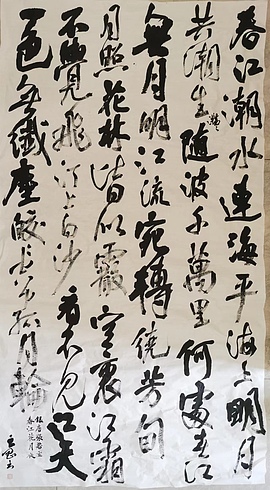 春江潮水連海平海上明月
共潮生灩隨波千萬里何處春江
無月明江流宛轉繞芳甸
月照花林皆似霰空裏流霜
不覺飛汀上白沙看不見江天
一色無纖塵皎空孤月輪
錄唐張若虛
春江花月夜